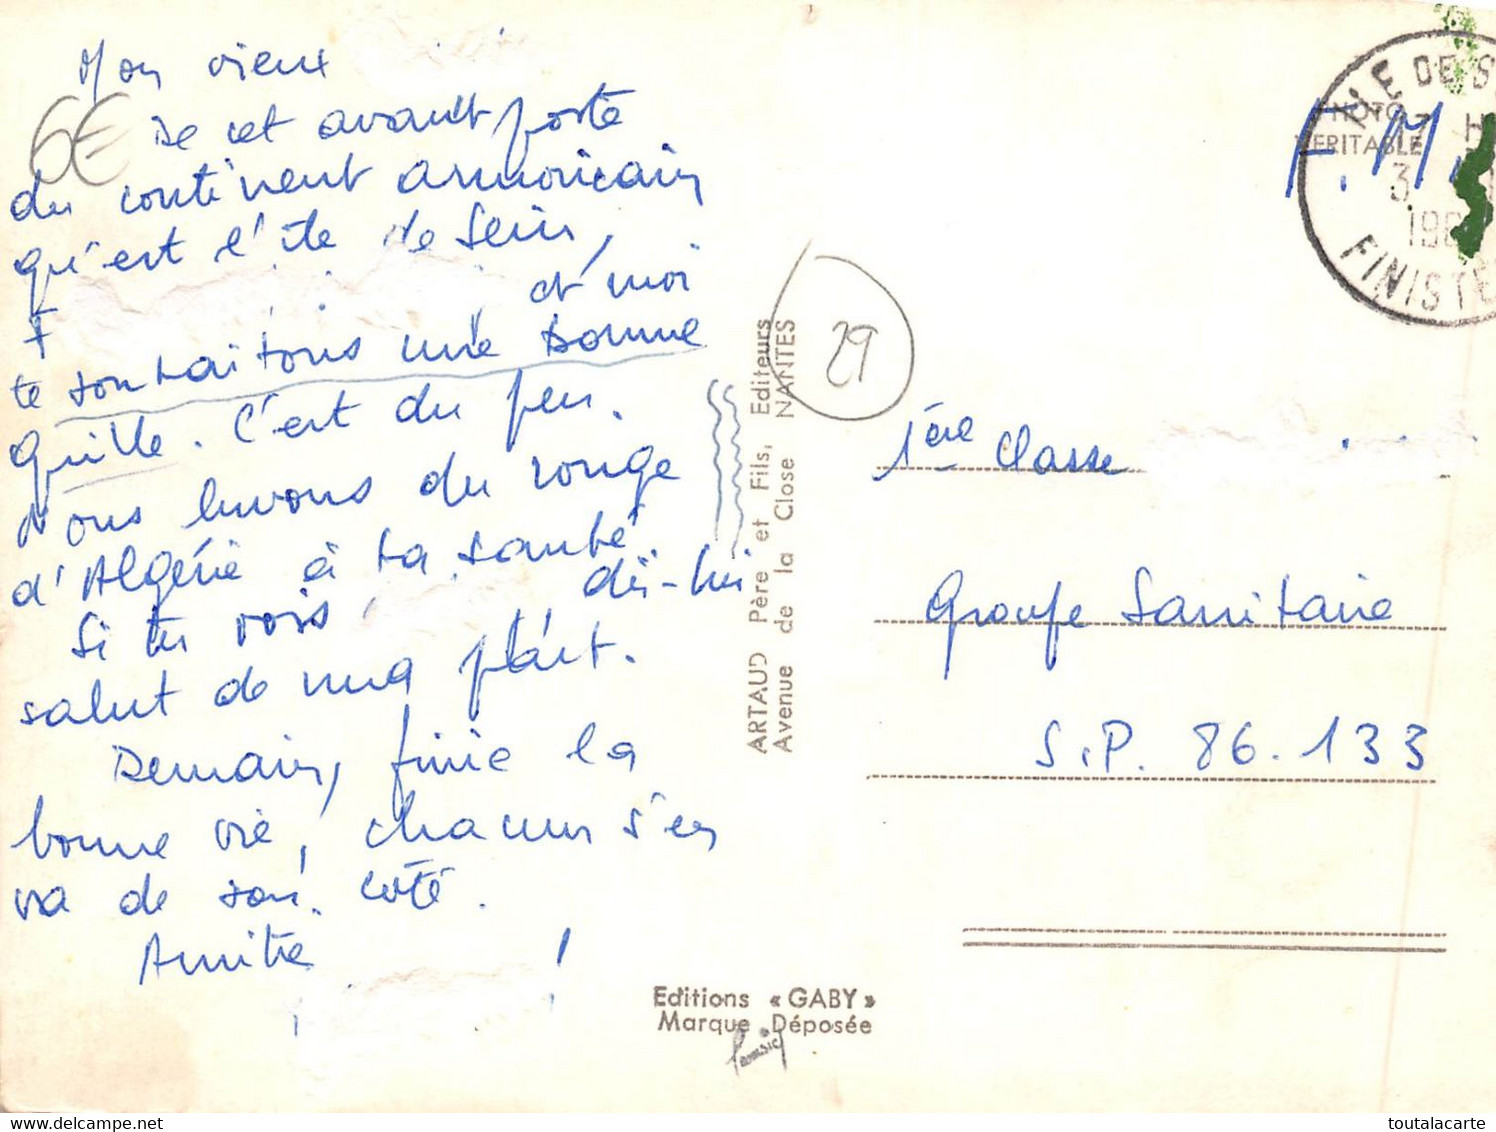 Mon vieux
De cet avant poste
du continent armoricain
qu'est l'île de Sein,
et moi
te souhaitons une bonne
quille. C'est du peu.
Nous buvons du rouge
d'Algérie à ta santé.
Si tu vois dis-lui
salut de ma part.
Demain, finie la
bonne vie, chacun s'en
va de son côté.
Amitié
!
6€
29
ARTAUD Père et Fils, Editeurs
Avenue de la Close NANTES
Editions « GABY »
Marque Déposée
PHOTO
VERITABLE
F.M.
ILE DE S
17 H
3
196
FINISTE
1ère classe
Groupe Sanitaire
S.P. 86.133
toutalacarte